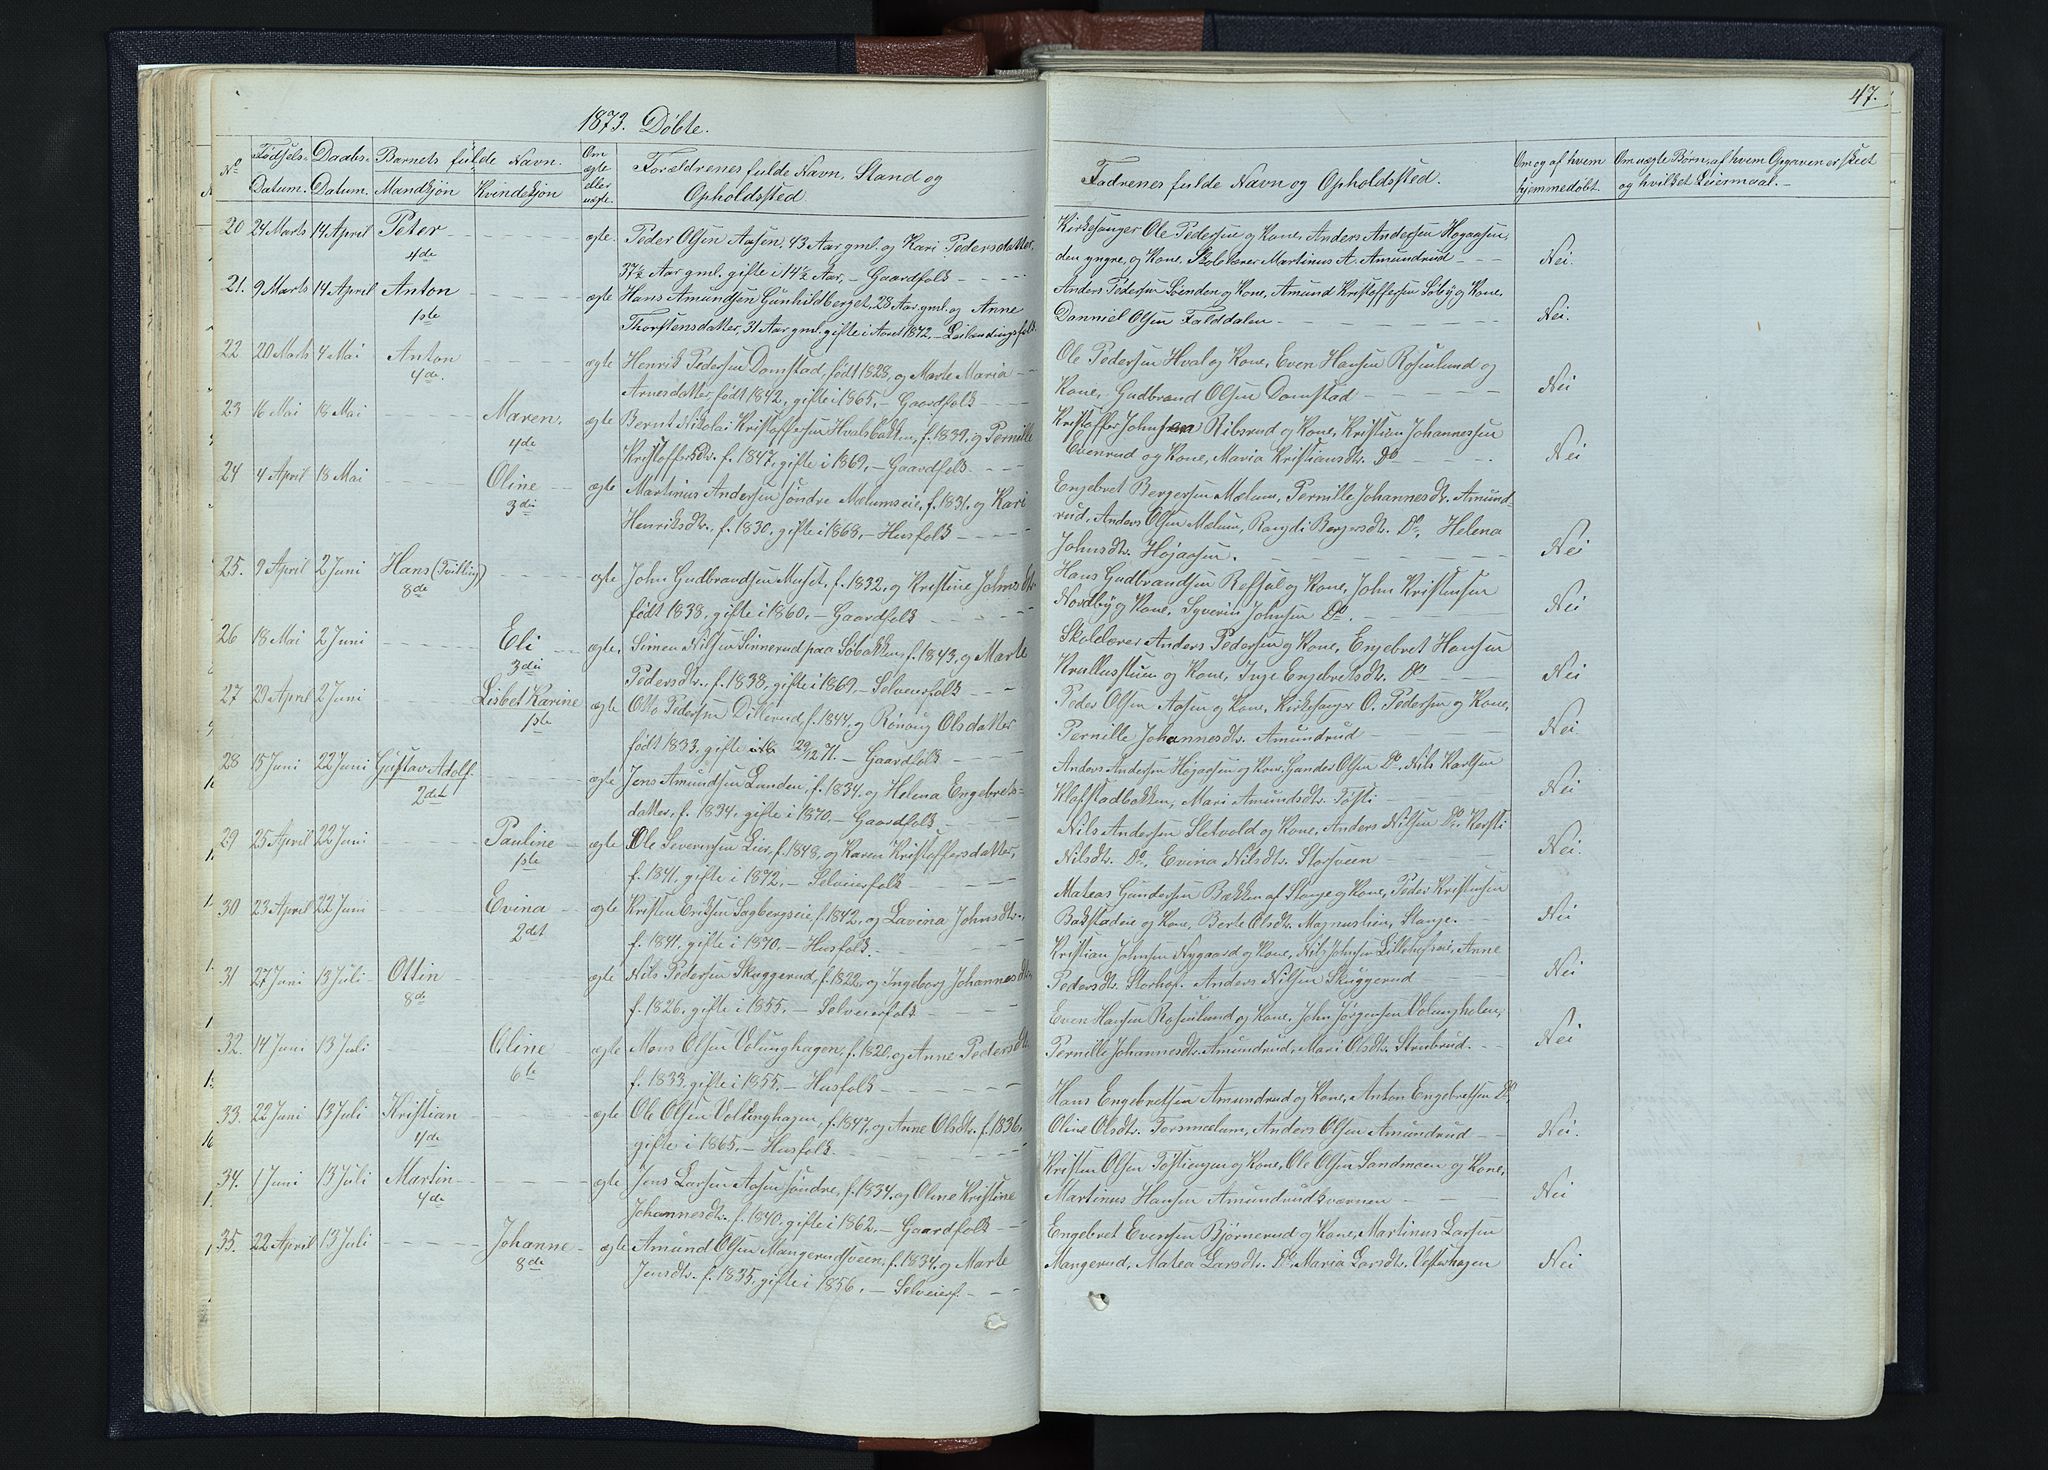 1873. Döbte.
No
Fødsels-
Datum.
Daabs-
Datum.
Barnets fulde Navn.
Mandkjøn
Kvindekjøn
Om
ægte
eller
uægte.
Forældrenes fulde Navn, Stand og
Opholdssted.
20 24 Marts 14 April Peter 4de ægte Peder Olsen Aasen, 43 Aar gml. og Kari Pedersdatter,
37½ Aar gml. gifte i 14½ Aar, – Gaardfolk
21. 9 Marts 14 April Anton 1ste ægte Hans Amundsen Gunhildberget, 28 Aar gml. og Anne
Thorstensdatter, 31 Aar gml. gifte i Aaret 1872, –
22 20 Marts 4 Mai Anton 4de. ægte Henrik Pedersen Domstad, født 1828, og Marte Maria
Arnesdatter, født 1842, gifte i 1865, – Gaardfolk
23 16 Mai 18 Mai Maren, 4de ægte Bernt Nikolai Kristoffersen Hvalsbakken, f. 1839, og Pernille
Kristoffersdtr. f. 1847, gifte i 1869, – Gaardfolk
24 4 April 18 Mai Oline 3die ægte Martinus Andersen søndre Mælumseie, f. 1831, og Kari
Henriksdtr. f. 1830, gifte i 1868, – Husfolk
25. 9 April 2 Juni Hans (Tvilling) 8de ægte John Gudbrandsen Muset, f. 1832, og Kristine Johnsdtr
født 1838, gifte i 1860, – Gaardfolk
26 18 Mai 2 Juni Eli 3die ægte Simen Nilsen Sinnerud paa Søbakken, f. 1843, og Marte
Pedersdtr. f. 1838, gifte i 1869, – Selveierfolk
27 29 April 2 Juni Lisbet Karine 1ste ægte Otto Pedersen Dillerud, f. 1844, og Rønaug Olsdatter
født 1833, gifte 29/12 71. – Gaardfolk
28 15 Juni 22 Juni Gustav Adolf. 2det ægte Jens Amundsen Lunden, f. 1834, og Helena Engebrets-
datter, f. 1834, gifte i 1870, – Gaardfolk
29 25 April 22 Juni Pauline 1ste ægte Ole Severinsen Lier, f. 1848, og Karen Kristoffersdatter,
f. 1841, gifte i 1872, – Selveierfolk
30 23 April 22 Juni Evina 2det ægte Kristen Eriksen Sagbergseie, f. 1842, og Lavina Johnsdtr.
f. 1841, gifte i 1870, – Husfolk
31 27 Juni 13 Juli Ottin 8de ægte Nils Pedersen Skuggerud, f. 1822, og Ingeborg Johannesdtr
f. 1826, gifte i 1855, – Selveierfolk
32. 14 Juni 13 Juli Oline 6te ægte Mons Olsen Volunghagen, f. 1820, og Anne Pedersdt.
f. 1833, gifte i 1855, – Husfolk
33. 22 Juni 13 Juli Kristian 4de ægte Ole Olsen Volunghagen, f. 1847, og Anne Olsdtr. f. 1836,
gifte i 1865, – Husfolk.
34. 1 Juni 13 Juli Martin 4de ægte Jens Larsen Aasen søndre, f. 1834, og Oline Kristine
Johannesdtr. f. 1840, gifte i 1862, – Gaardfolk
35. 22 April 13 Juli Johanne 8de ægte Amund Olsen Mangerudsveen, f. 1834, og Marte
Jensdtr. f. 1835, gifte i 1856, – Selveierf.
47.
Fadrenes fulde Navn og Opholdssted.
Om og af hvem
hjemmedøbt.
Om uægte Børn, af hvem Opgaven er skeet
og hvilket Leiermaal.
Kirkesanger Ole Pedersen og Kone, Anders Andersen Høgaasen
den yngre, og Kone, Skolelærer Martinus A. Amundrud Nei.
Anders Pedersen Loenden og Kone, Amund Kristoffersen Søby og Kone,
Danniel Olsen Falddalen Nei.
Ole Pedersen Hval og Kone, Even Hansen Rosenlund og
Kone, Gudbrand Olsen Domstad Nei
Kristoffer Johnsen Ribsrud og Kone, Kristian Johannessen
Evenrud og Kone, Maria Kristiansdtr. Do Nei
Engebret Bergersen Mælum, Pernille Johannesdtr. Amund-
rud, Anders Olsen Mælum, Rangdi Bergersdtr. Do, Helena
Johnsdtr. Højaasen. Nei
Hans Gudbrandsen Refsal og Kone, John Kristensen
Nordby og Kone, Syverin Johnsen Do. Nei
Skolelærer Anders Pedersen og Kone, Engebret Hansen
Krullustuen og Kone, Inge Engebretsdtr. Do Nei
Peder Olsen Aasen og Kone, Kirkesanger O. Pedersen og Kone,
Pernille Johannesdtr. Amundrud Nei.
Anders Andersen Højaasen og Kone, Gunder Olsen Do. Nils Karlsen
Klofstadbakken, Mari Amundsdtr. Tøsti Nei
Nils Andersen Sletvold og Kone, Anders Nilsen Do. Kersti
Nilsdtr. Do, Evina Nilsdtr. Storsveen Nei.
Mateas Gundersen Bækken af Stange og Kone, Peder Kristensen
Bakstadeie og Kone, Berte Olsdtr. Magnusheim, Stange. Nei
Kristian Johnsen Nygaard og Kone, Nils Johnsen Anne
Pedersdtr. Storhof. Anders Nilsen Skuggerud Nei
Even Hansen Rosenlund og Kone, John Jørgensen Volunghelen,
Pernille Johannesdtr. Amundrud, Mari Olsdtr. Strubrud. Nei
Hans Engebretsen Amundrud og Kone, Anton Engebretsen Do,
Oline Olsdtr. Torsmælum, Anders Olsen Amundrud Nei.
Kristen Olsen Tøstiengen og Kone, Ole Olsen Sandmoen og Kone,
Martinus Hansen Amundrudkværnen Nei
Engebret Evensen Bjørnerud og Kone, Martinus Larsen
Mangerud, Matea Larsdtr. Do, Maria Larsdtr. Vesterhagen Nei